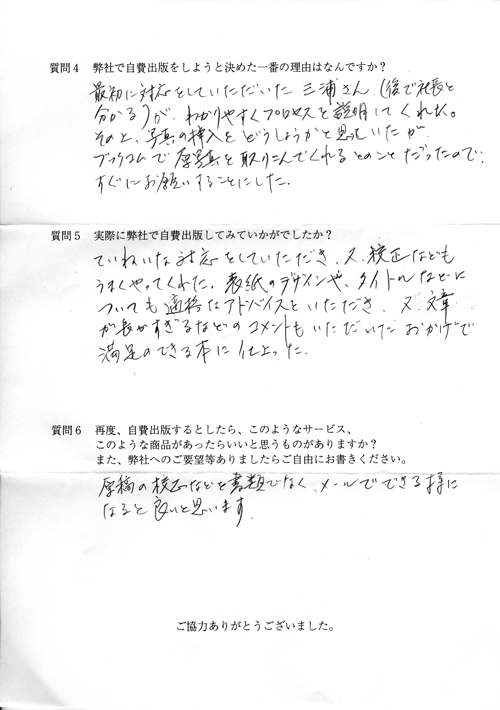 質問４　弊社で自費出版をしようと決めた一番の理由はなんですか？
最初に対応をしていただいた 三浦さん（後で社長と
分かる）が、わかりやすくプロセスを説明してくれた。
その上、写真の挿入をどうしようかと思っていたが
ブックコムで原写真を取りこんでくれるとのことだったので、
すぐにお願いすることにした。
質問５　実際に弊社で自費出版してみていかがでしたか？
ていねいな対応をしていただき、又、校正なども
うまくやってくれた。表紙のデザインや、タイトルなどに
ついても適格なアドバイスをいただき、又、文章
が長すぎるなどのコメントもいただいた おかげで
満足のできる本に仕上った。
質問６　再度、自費出版するとしたら、このようなサービス、
このような商品があったらいいと思うものがありますか？
また、弊社へのご要望等ありましたらご自由にお書きください。
原稿の校正などを書類でなく、メールでできる様に
なると良いと思います。
ご協力ありがとうございました。